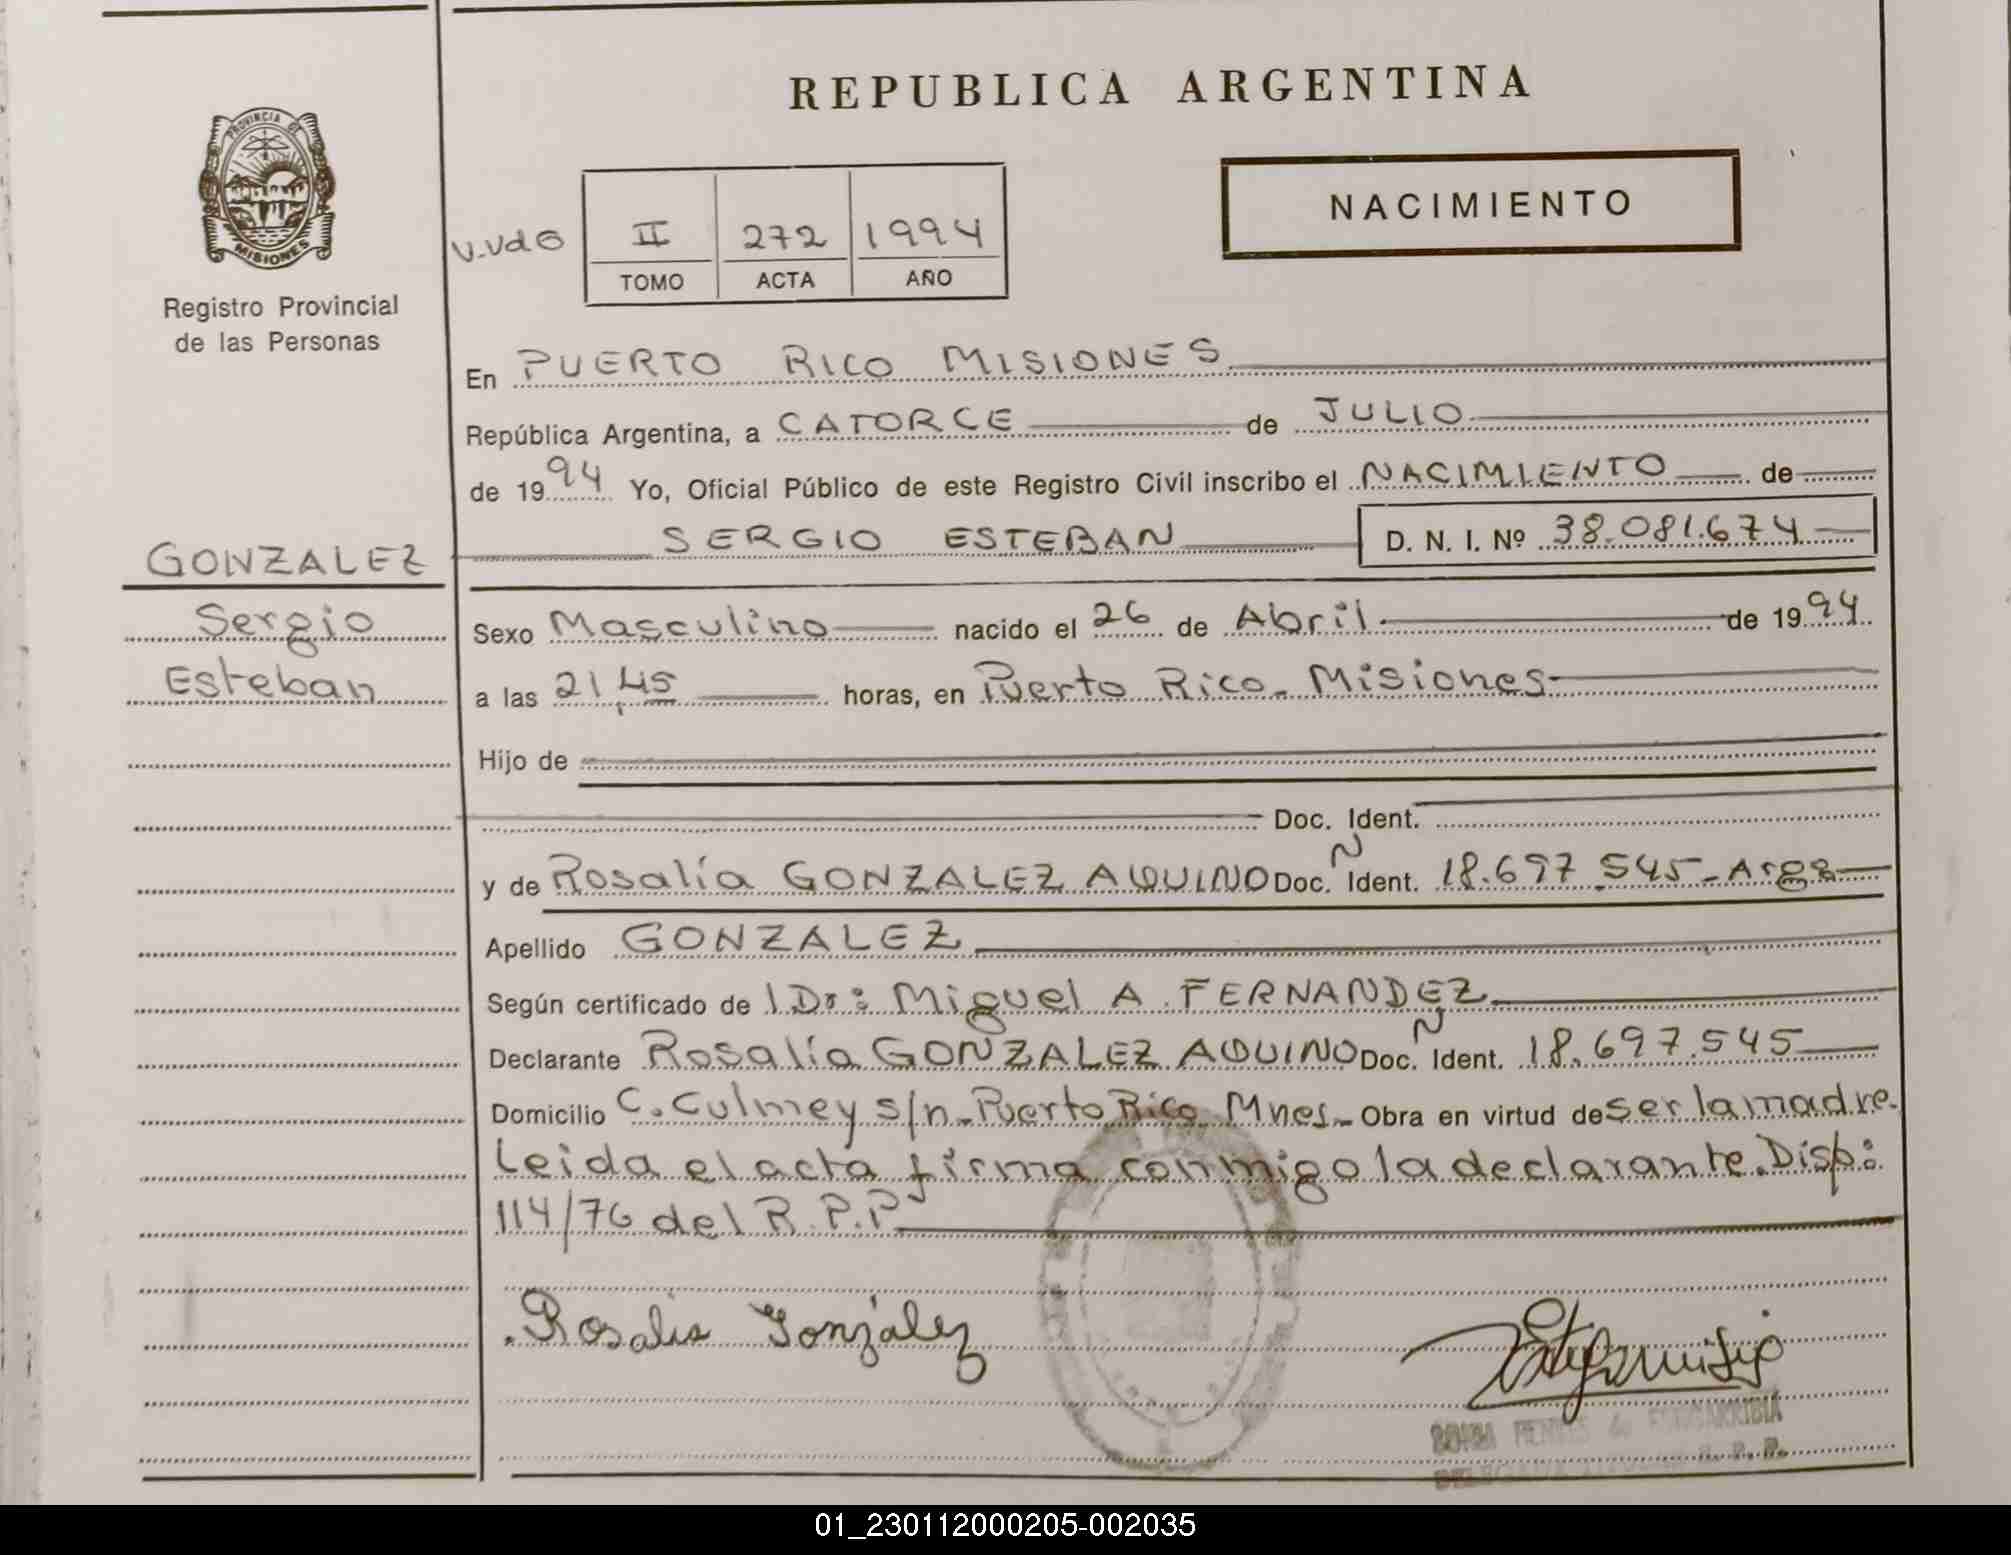 REPUBLICA ARGENTINA
PROVINCIA DE
MISIONES
Registro Provincial
de las Personas
NACIMIENTO
II 272 1994
TOMO ACTA AÑO
En PUERTO RICO MISIONES
República Argentina, a CATORCE de JULIO
de 1994 Yo, Oficial Público de este Registro Civil inscribo el NACIMIENTO de
GONZALEZ
SERGIO ESTEBAN D. N. I. Nº 38.081.674
Sergio
Esteban
Sexo Masculino nacido el 26 de Abril de 1994
a las 21,45 horas, en Puerto Rico - Misiones
Hijo de
Doc. Ident.
y de Rosalía GONZALEZ AQUINO Doc. N Ident. 18.697.545 - Arg
Apellido GONZALEZ
Según certificado de l Dr: Miguel A. FERNANDEZ
Declarante Rosalía GONZALEZ AQUINO Doc. N Ident. 18.697.545
Domicilio C. Culmey s/n - Puerto Rico Mnes - Obra en virtud de ser la madre.
Leida el acta firma conmigo la declarante. Disp:
114/76 del R.P.P
Rosalia González
01_230112000205-002035